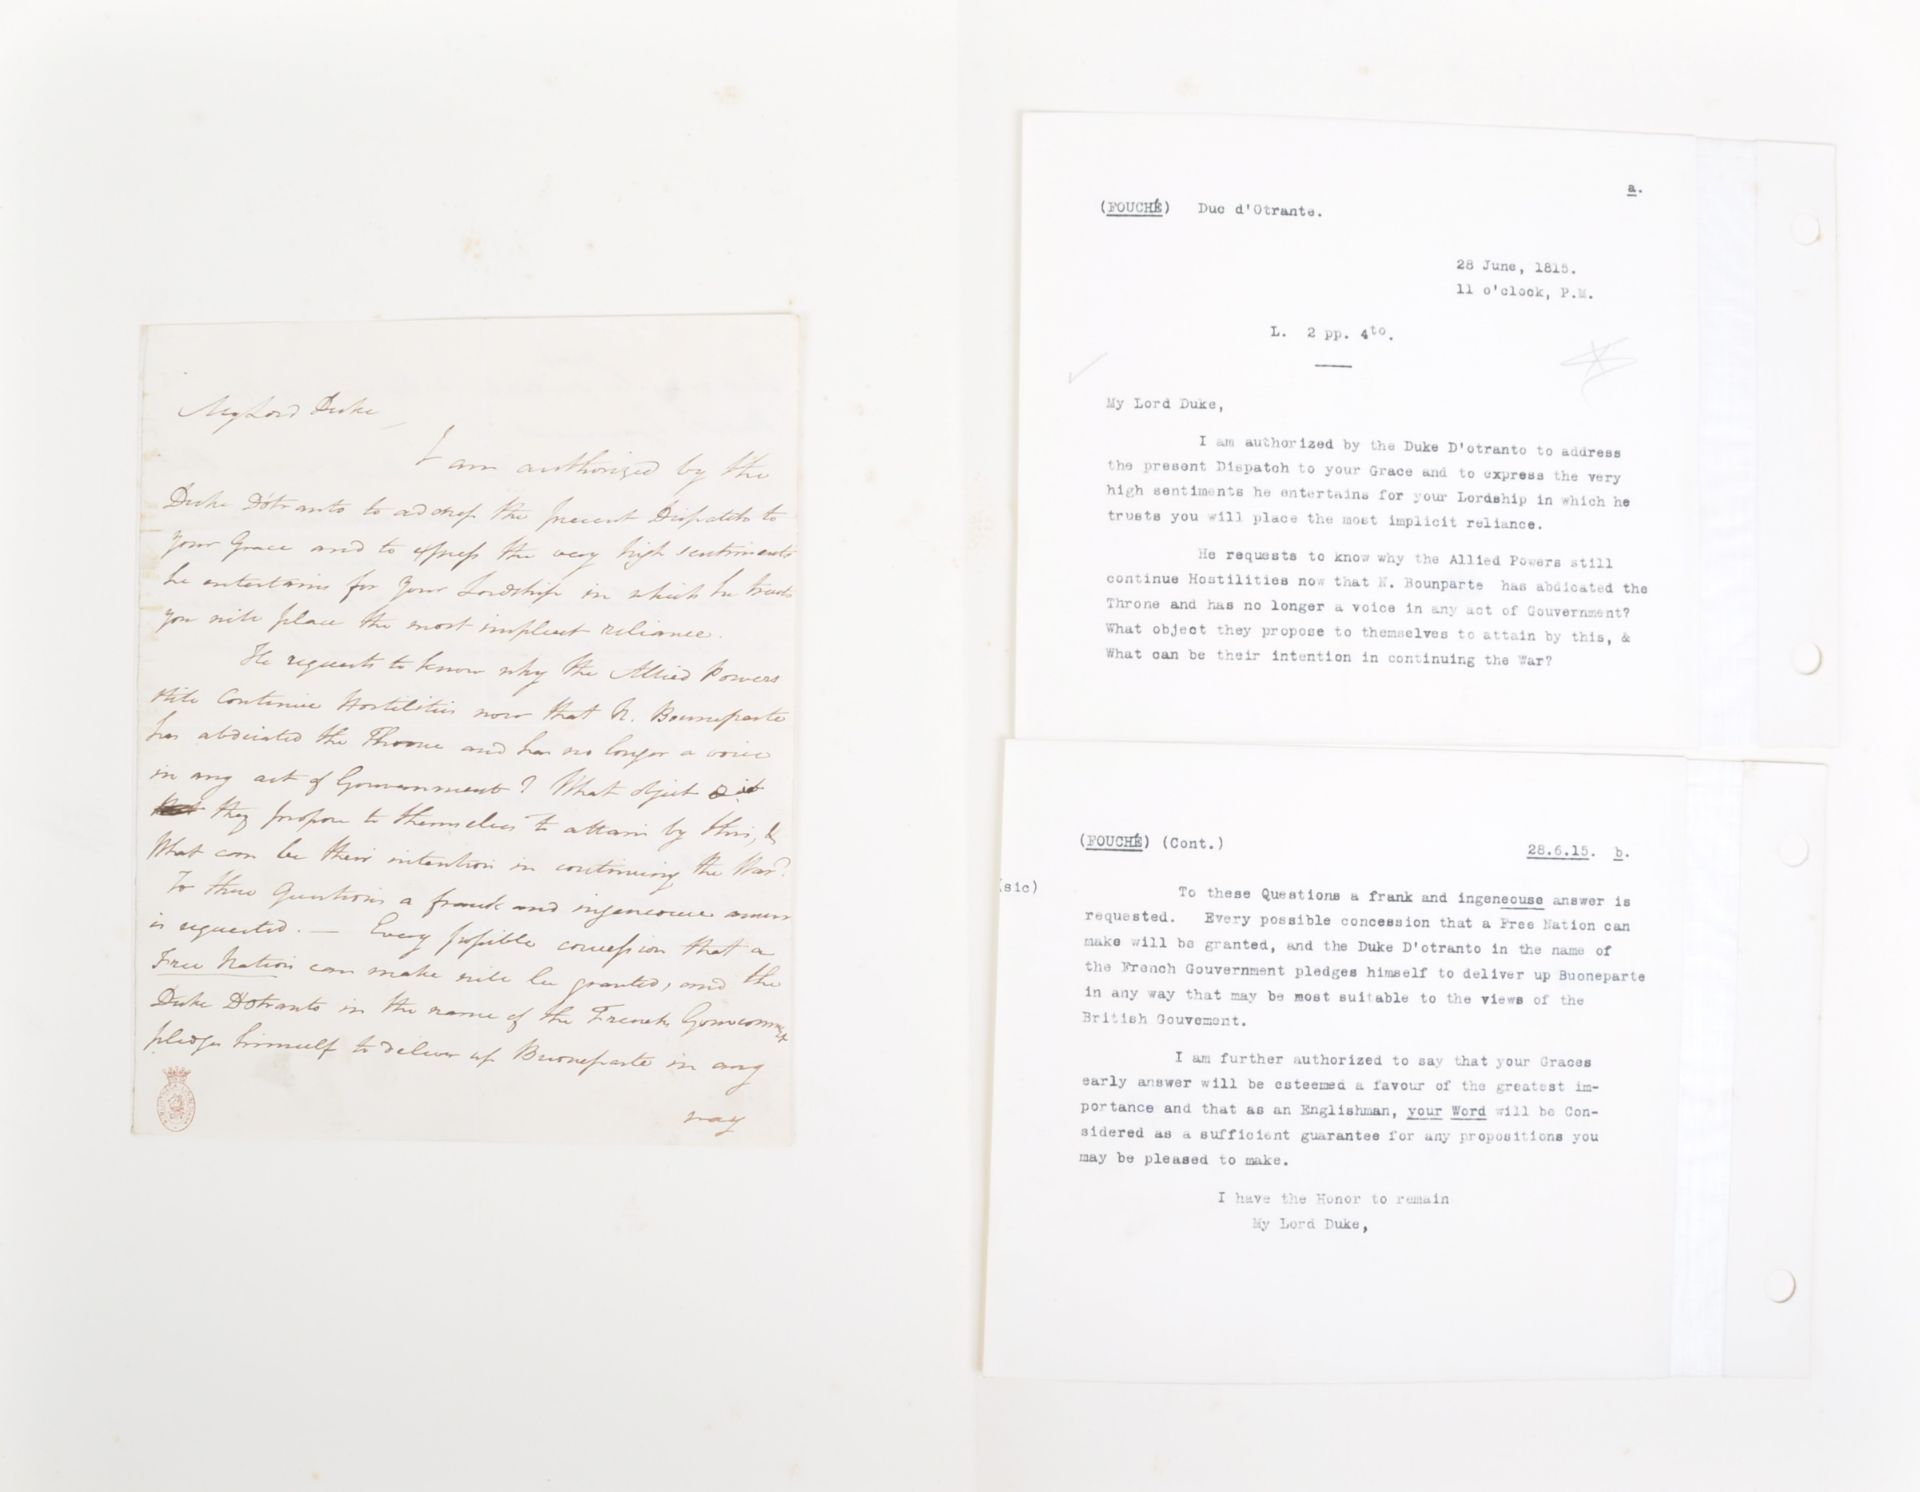 My Lord Duke,
I am authorized by the
Duke D'otranto to address the present Dispatch to
your Grace and to express the very high sentiments
he entertains for your Lordship in which he trusts
you will place the most implicit reliance.
He requests to know why the Allied Powers
still continue Hostilities now that N. Bouneparte
has abdicated the Throne and has no longer a voice
in any act of Gouvernment? What object
they propose to themselves to attain by this, &
What can be their intention in continuing the War?
To these Questions a frank and ingeneouse answer
is requested. — Every possible concession that a
Free Nation can make will be granted, and the
Duke D'otranto in the name of the French Gouvernment
pledges himself to deliver up Buoneparte in any
way
a.
(FOUCHÉ) Duc d'Otrante.
28 June, 1815.
11 o'clock, P.M.
L. 2 pp. 4to.
My Lord Duke,
I am authorized by the Duke D'otranto to address
the present Dispatch to your Grace and to express the very
high sentiments he entertains for your Lordship in which he
trusts you will place the most implicit reliance.
He requests to know why the Allied Powers still
continue Hostilities now that N. Bounparte has abdicated the
Throne and has no longer a voice in any act of Gouvernment?
What object they propose to themselves to attain by this, &
What can be their intention in continuing the War?
(FOUCHÉ) (Cont.)
28.6.15. b.
(sic)
To these Questions a frank and ingeneouse answer is
requested. Every possible concession that a Free Nation can
make will be granted, and the Duke D'otranto in the name of
the French Gouvernment pledges himself to deliver up Buoneparte
in any way that may be most suitable to the views of the
British Gouvement.
I am further authorized to say that your Graces
early answer will be esteemed a favour of the greatest im-
portance and that as an Englishman, your Word will be Con-
sidered as a sufficient guarantee for any propositions you
may be pleased to make.
I have the Honor to remain
My Lord Duke,